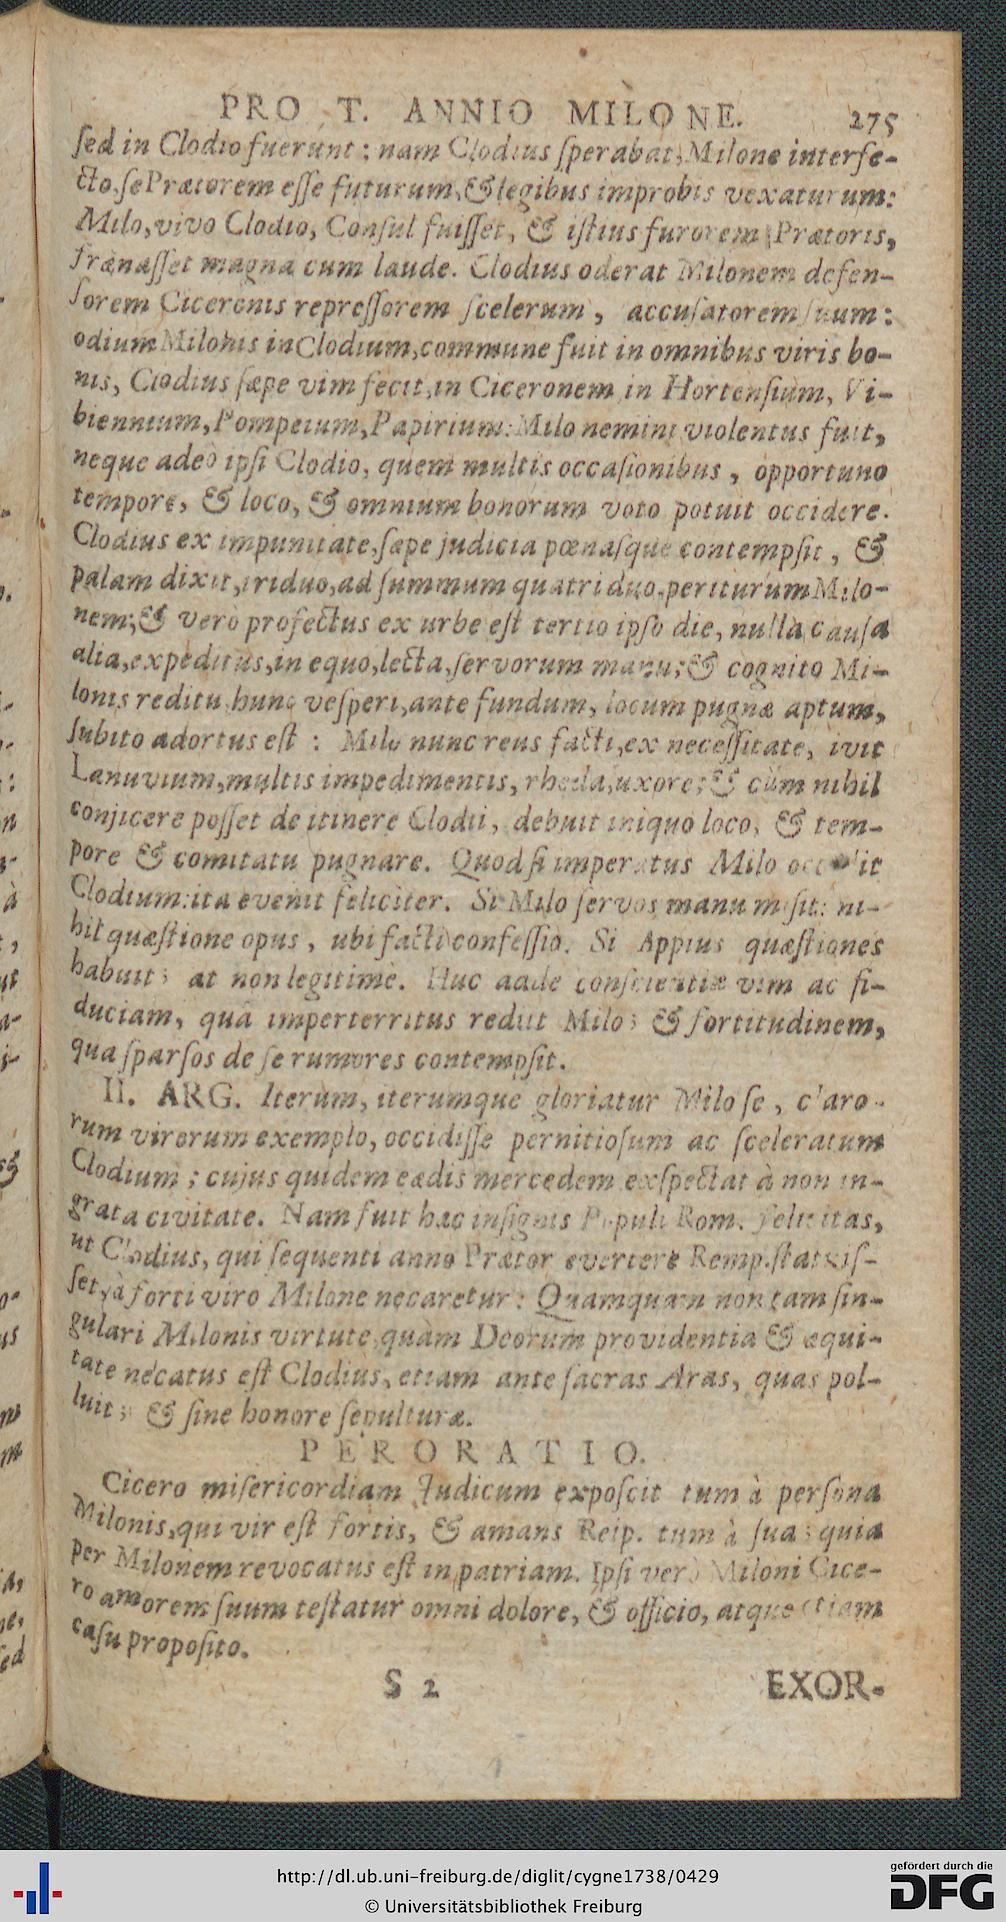 PRO T. ANNIO MILONE. 275
sed in Clodio fuerunt : nam Clodius sperabat, Milone interfe-
cto, se Prætorem esse futurum, & legibus improbis vexaturum:
Milo, vivo Clodio, Consul fuisset, & istius furorem Prætoris,
frænasset magna cum laude. Clodius oderat Milonem defen-
sorem Ciceronis repressorem scelerum, accusatorem suum:
odium Milonis in Clodium, commune fuit in omnibus viris bo-
nis, Clodius sæpe vim fecit, in Ciceronem in Hortensium, Vi-
biennium, Pompeium, Papirium: Milo nemini violentus fuit,
neque adeò ipsi Clodio, quem multis occasionibus, opportuno
tempore, & loco, & omnium bonorum voto potuit occidere.
Clodius ex impunitate, sæpe judicia pœnasque contempsit, &
palam dixit, triduo, ad summum quatriduo, periturum Milo-
nem; & verò profectus ex urbe est tertio ipso die, nullà causa
alia, expeditus, in equo, lecta, servorum manu; & cognito Mi-
lonis reditu hunc vesperi, ante fundum, locum pugnæ aptum,
subito adortus est : Milo nunc reus facti, ex necessitate, ivit
Lanuvium, multis impedimentis, rheda, uxore; & cùm nihil
conjicere posset de itinere Clodii, debuit iniquo loco, & tem-
pore & comitatu pugnare. Quod si imperatus Milo it
Clodium: ita evenit feliciter. Si Milo servos manu misit: ni-
hil quæstione opus, ubi facti confessio. Si Appius quæstiones
habuit; at non legitimè. Huc adde conscientiæ vim ac fi-
duciam, quâ imperterritus rediit Milo; & fortitudinem,
qua sparsos de se rumores contempsit.
II. ARG. Iterùm, iterumque gloriatur Milo se, claro-
rum virorum exemplo, occidisse pernitiosum ac sceleratum
Clodium; cujus quidem cædis mercedem exspectat à non in-
grata civitate. Nam fuit hæc insignis Populi Rom. felicitas,
ut Clodius, qui sequenti anno Prætor evertere Remp. statuis-
set, à forti viro Milone necaretur: Quamquam non tam sin-
gulari Milonis virtute, quàm Deorum providentia & æqui-
tate necatus est Clodius, etiam ante sacras Aras, quas pol-
luit; & sine honore sepulturæ.
PERORATIO.
Cicero misericordiam Judicum exposcit tum à persona
Milonis, qui vir est fortis, & amans Reip. tum à sua; quia
per Milonem revocatus est in patriam. Ipsi verò Miloni Cice-
ro amorem suum testatur omni dolore, & officio, atque etiam
casu proposito.
S 2 EXOR-
http://dl.ub.uni-freiburg.de/diglit/cygne1738/0429
© Universitätsbibliothek Freiburg
gefördert durch die
DFG